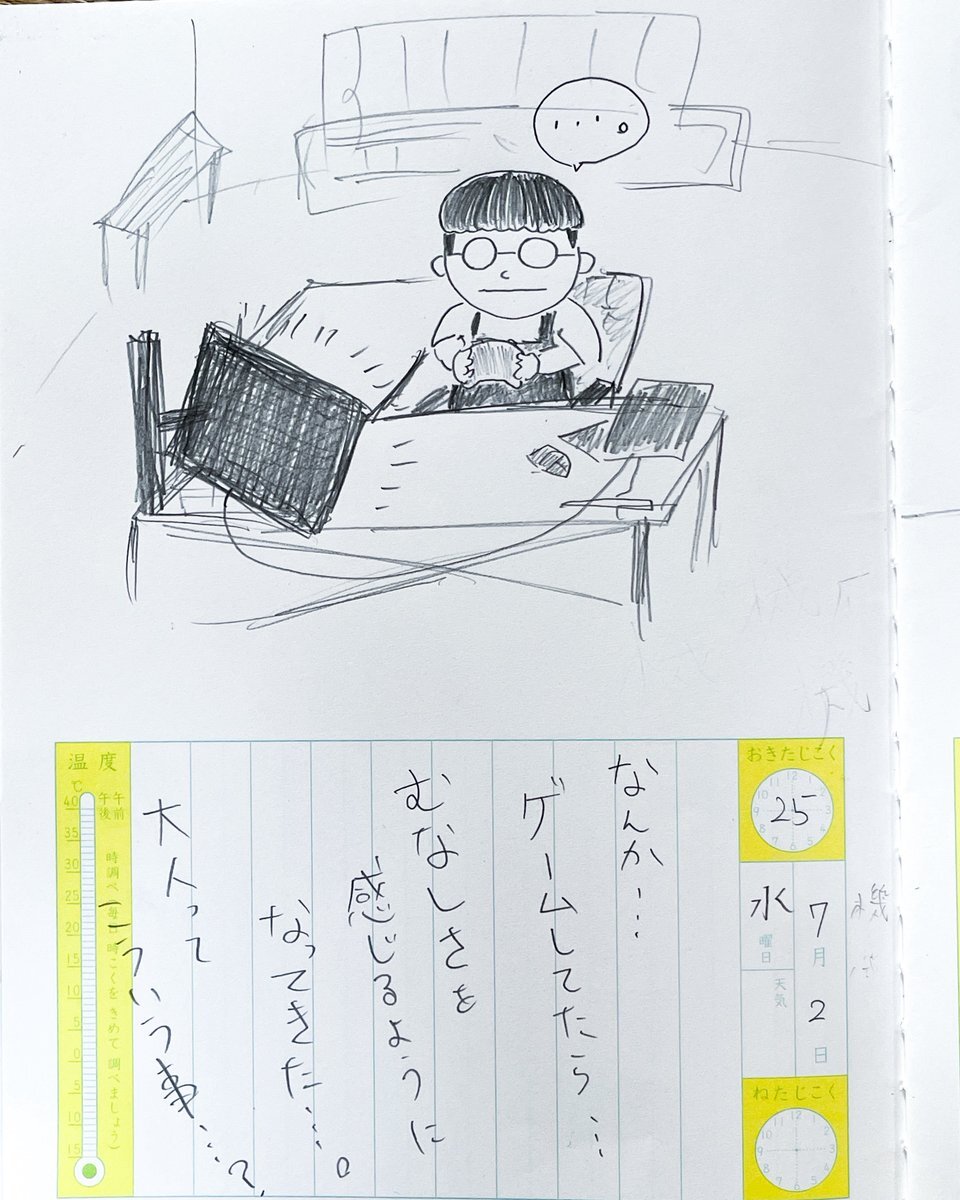 ・・・。
おきたじこく
25
7月2日
水曜日
天気
ねたじこく
なんか…
ゲームしてたら…
むなしさを
感じるように
なってきた…。
大人って
こういう事…?
温度
℃
午前
午後
時調べ(毎日時こくをきめて調べましょう)
40
35
30
25
20
15
10
5
0
5
10
15